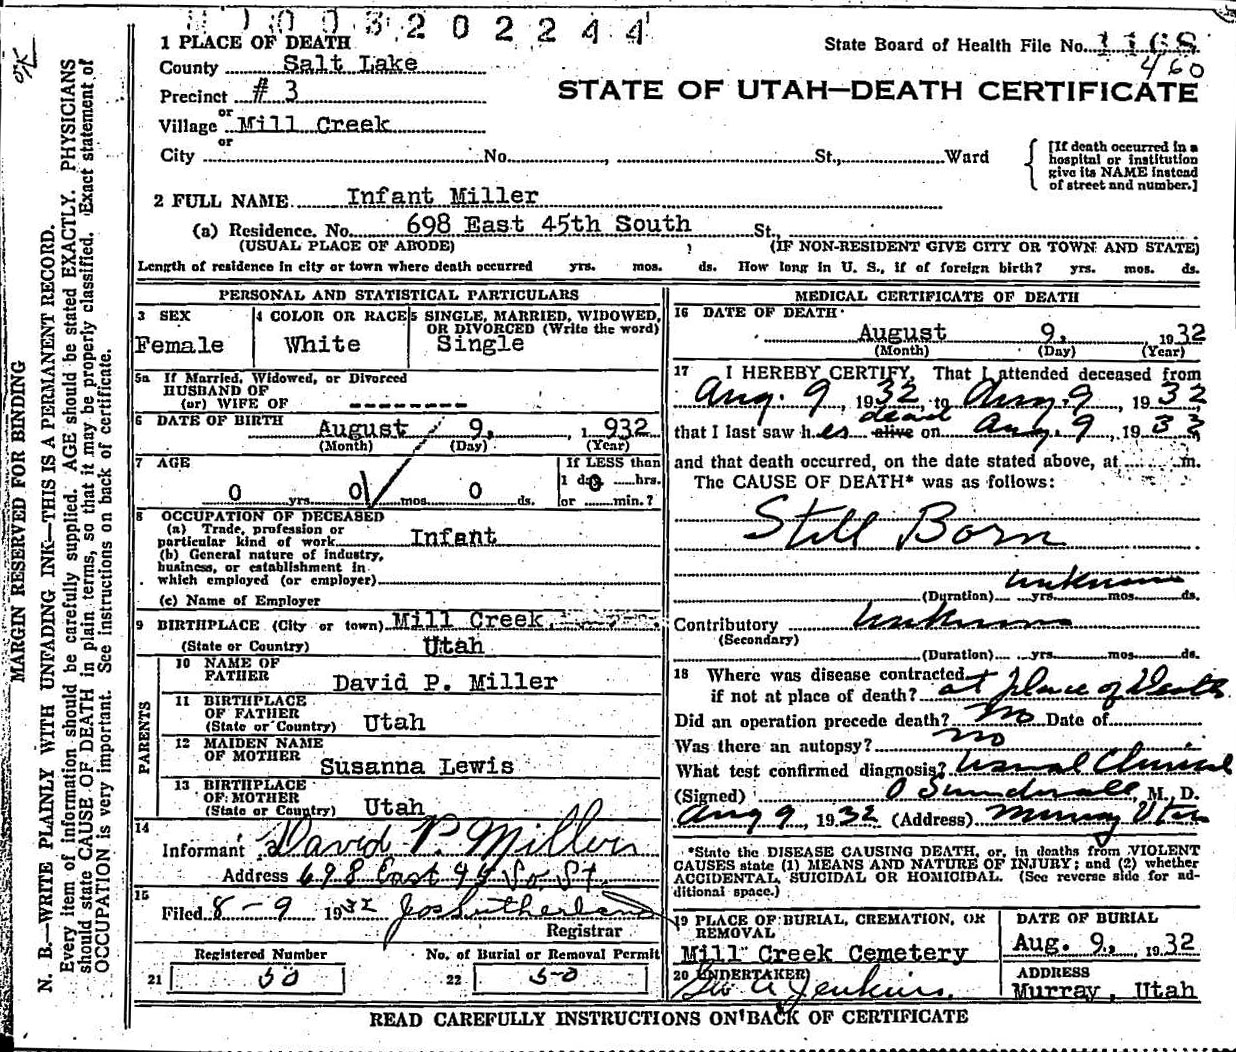 1003202244
OK
1 PLACE OF DEATH
State Board of Health File No. 1168
460
County Salt Lake
Precinct # 3
STATE OF UTAH—DEATH CERTIFICATE
or
Village Mill Creek
or
City No. , St., Ward
[If death occurred in a hospital or institution give its NAME instead of street and number.]
2 FULL NAME Infant Miller
(a) Residence. No. 698 East 45th South St.,
(USUAL PLACE OF ABODE) (IF NON-RESIDENT GIVE CITY OR TOWN AND STATE)
Length of residence in city or town where death occurred yrs. mos. ds. How long in U. S., if of foreign birth? yrs. mos. ds.
PERSONAL AND STATISTICAL PARTICULARS
3 SEX
Female
4 COLOR OR RACE
White
5 SINGLE, MARRIED, WIDOWED, OR DIVORCED (Write the word)
Single
5a If Married, Widowed, or Divorced
HUSBAND OF
(or) WIFE OF --------
6 DATE OF BIRTH August 9, 1932
(Month) (Day) (Year)
7 AGE
0 yrs. 0 mos. 0 ds.
If LESS than
1 day 0 hrs.
or min.?
8 OCCUPATION OF DECEASED
(a) Trade, profession or
particular kind of work Infant
(b) General nature of industry,
business, or establishment in
which employed (or employer)
(c) Name of Employer
9 BIRTHPLACE (City or town) Mill Creek,
(State or Country) Utah
PARENTS
10 NAME OF FATHER David P. Miller
11 BIRTHPLACE OF FATHER (State or Country) Utah
12 MAIDEN NAME OF MOTHER Susanna Lewis
13 BIRTHPLACE OF MOTHER (State or Country) Utah
14
Informant David P. Miller
Address 698 East 45 So. St.
15
Filed 8-9 1932 Jos Sutherland
Registrar
Registered Number
21 50
No. of Burial or Removal Permit
22 50
MEDICAL CERTIFICATE OF DEATH
16 DATE OF DEATH
August 9, 1932
(Month) (Day) (Year)
17 I HEREBY CERTIFY, That I attended deceased from
Aug. 9, 1932, to Aug. 9, 1932
dead
that I last saw h es alive on Aug. 9, 1932
and that death occurred, on the date stated above, at m.
The CAUSE OF DEATH* was as follows:
Still Born
unknown
(Duration) yrs. mos. ds.
Contributory unknown
(Secondary)
(Duration) yrs. mos. ds.
18 Where was disease contracted
if not at place of death? at place of Death
Did an operation precede death? no Date of
Was there an autopsy? no
What test confirmed diagnosis? Usual Clinical
(Signed) O Sundwall, M. D.
Aug 9, 1932 (Address) Murray Utah
*State the DISEASE CAUSING DEATH, or, in deaths from VIOLENT
CAUSES state (1) MEANS AND NATURE OF INJURY; and (2) whether
ACCIDENTAL, SUICIDAL OR HOMICIDAL. (See reverse side for ad-
ditional space.)
19 PLACE OF BURIAL, CREMATION, OR REMOVAL
Mill Creek Cemetery
DATE OF BURIAL
Aug. 9, 1932
20 UNDERTAKER
Geo A Jenkins.
ADDRESS
Murray, Utah
READ CAREFULLY INSTRUCTIONS ON BACK OF CERTIFICATE
MARGIN RESERVED FOR BINDING
N. B.—WRITE PLAINLY WITH UNFADING INK—THIS IS A PERMANENT RECORD.
Every item of information should be carefully supplied. AGE should be stated EXACTLY. PHYSICIANS
should state CAUSE OF DEATH in plain terms, so that it may be properly classified. Exact statement of
OCCUPATION is very important. See instructions on back of certificate.